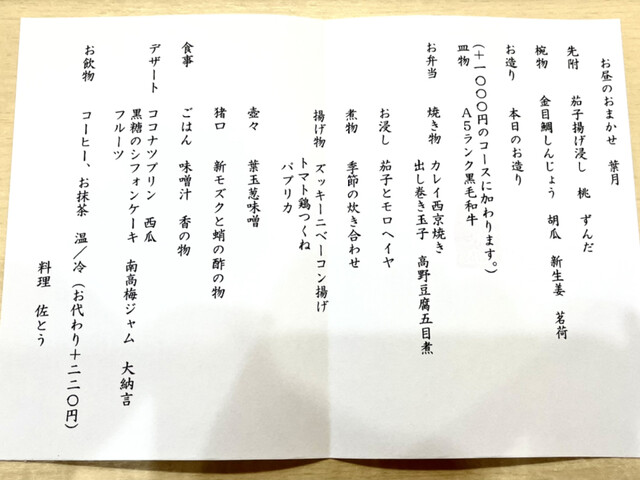 お昼のおまかせ　葉月
先附　茄子揚げ浸し　桃　ずんだ
椀物　金目鯛しんじょう　胡瓜　新生姜　茗荷
お造り　本日のお造り
(＋一〇〇〇円のコースに加わります。)
皿物　A5ランク黒毛和牛
お弁当　焼き物　カレイ西京焼き
出し巻き玉子　高野豆腐五目煮
お浸し　茄子とモロヘイヤ
煮物　季節の炊き合わせ
揚げ物　ズッキーニベーコン揚げ
トマト鶏つくね
パプリカ
壺々　葉玉葱味噌
猪口　新モズクと蛸の酢の物
食事　ごはん　味噌汁　香の物
デザート　ココナツプリン　西瓜
黒糖のシフォンケーキ　南高梅ジャム　大納言
フルーツ
お飲物　コーヒー、お抹茶　温／冷（お代わり＋二二〇円）
料理　佐とう